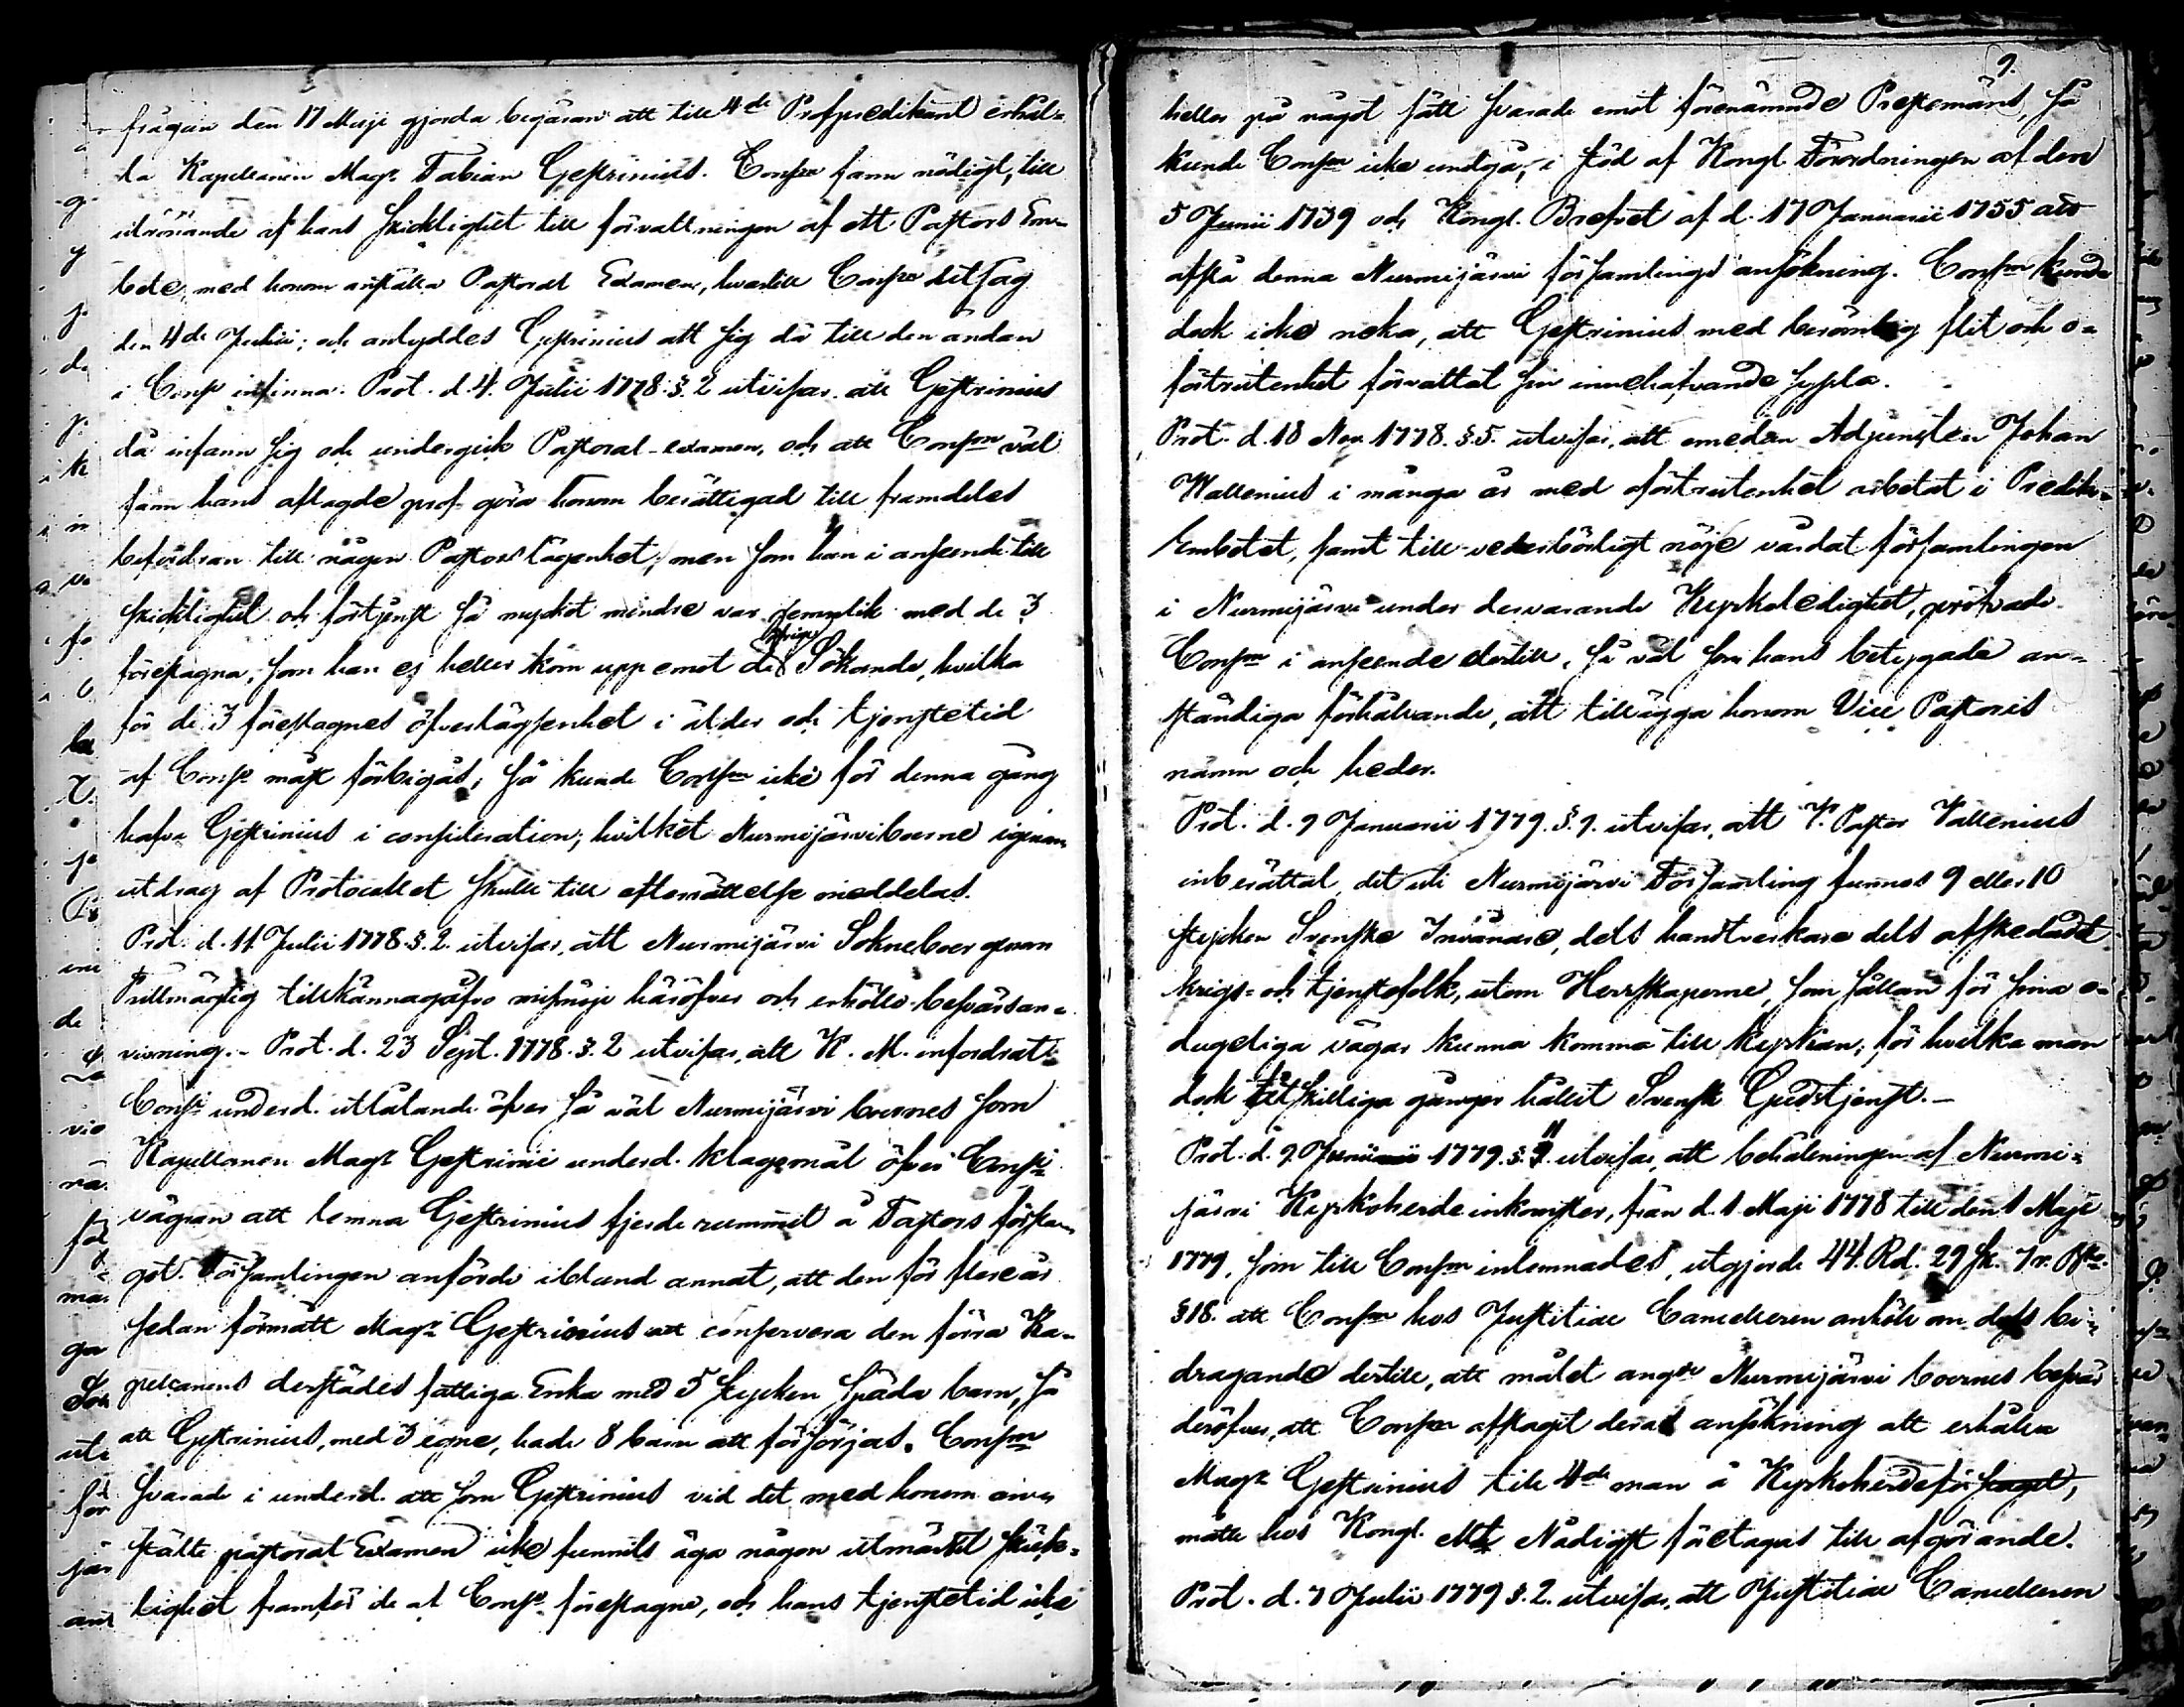 frågan den 17 Maji gjorda begäran att till 4de Profpredikant erhål-
la Kapellanen Magr Fabian Gestrinius. Consm fann nödigt, till
utrönande af hans skicklighet till förvaltningen af ett Pastors Em-
bete, med honom anställa Pastoral Examen, hvartill Consm utsåg
den 4de Julii; och antyddes Gestrinius att sig då till den ändan
i Cons. infinna. Prot. d. 4. Julii 1778. §. 2 utvisar, att Gestrinius
då infann sig och undergick Pastoral-examen, och att Consm väl
fann hans aflagde prof göra honom berättigad till framdeles
befordran till någon Pastors lägenhet; men som han i anseende till
skicklighet och förtjenst så mycket mindre var jemnlik med de 3
föreslagna, som han ej heller kom upp emot de öfrige Sökande, hvilka
för de 3 föreslagnes öfverlägsenhet i ålder och tjenstetid
af Cons. måst förbigås; så kunde Consm icke för denna gång
hafva Gestrinius i consideration; hvilket Nurmijärviboerne igenom
utdrag af Protocollet skulle till efterrättelse meddelas.
Prot. d. 11 Julii 1778. §. 2. utvisar, att Nurmijärvi Sokneboer genom
Fullmägtig tillkännagåfvo missnöje häröfver och erhöllo besvärsan-
visning. - Prot. d. 23 Sept. 1778. §. 2 utvisar, att K. M. infordrat
Consi underd. utlåtande öfver så väl Nurmijärvi boernes som
Kapellanen Magr Gestrinii underd. klagomål öfver Consi
vägran att lemna Gestrinius fjerde rummet å Pastors försla-
get. Församlingen anförde ibland annat, att den för flere år
sedan förmått Magr Gestrinius att conservera den förra Ka-
pellanens derstädes fattiga Enka med 5 stycken späda barn, så
att Gestrinius, med 3 egne, hade 8 barn att försörjas. Consm
svarade i underd. att som Gestrinius vid det med honom an-
stälte pastoral Examen icke funnits äga någon utmärkt skick-
lighet framför de af Cons. föreslagne, och hans tjenstetid icke
9.
heller på något sätt svarade emot förenämnde Prestemäns, så
kunde Consm icke undgå, i stöd af Kongl. Förordningen af den
5 Junii 1739 och Kongl. Brefvet af d. 17 Januarii 1755 att
afslå denna Nurmijärvi församlings ansökning. Consm kunde
dock icke neka, att Gestrinius med berömlig flit och o-
förtrutenhet förvaltat sin innehafvande sysla.
Prot. d. 18 Nov. 1778. §. 5. utvisar, att emedan Adjuncten Johan
Wallenius i många år med oförtrutenhet arbetat i Prediko-
Embetet, samt till vederbörligt nöje vårdat församlingen
i Nurmijärvi under dervarande Kyrkoledighet, pröfvade
Consm i anseende dertill, så väl som hans betygade an-
ständiga förhållande, att tillägga honom Vice Pastoris
namn och heder.
Prot. d. 9 Januarii 1779. §. 9. utvisar, att V. Pastor Wallenius
inberättat, det uti Nurmijärvi Församling funnos 9 eller 10
stycken Svenske Invånare, dels handtverkare dels afskedadt
krigs- och tjenstefolk, utom Herrskaperne, som sällan för sina o-
dugeliga vägar kunna komma till Kyrkan; för hvilka man
dock åtskilliga gånger hållit Svensk Gudstjenst. -
Prot. d. 9. Junii 1779. §. 11. utvisar, att behållningen af Nurmi-
järvi Kyrkoherde inkomster, från d. 1 Maji 1778 till den 1 Maji
1779, som till Consm inlemnades, utgjorde 44. Rd. 29 sk. 7 r.
§ 18. att Consm hos Justitiae Cancelleren anhöll om dess bi-
dragande dertill, att målet angde Nurmijärvi boernes besvär
deröfver, att Consm afslagit deras ansökning att erhålla
Magr Gestrinius till 4de man å Kyrkoherdeförslaget,
måtte hos Kongl. Mt Nådigst företagas till afgörande.
Prot. d. 7 Julii 1779 §. 2. utvisar, att Justitiae Cancelleren